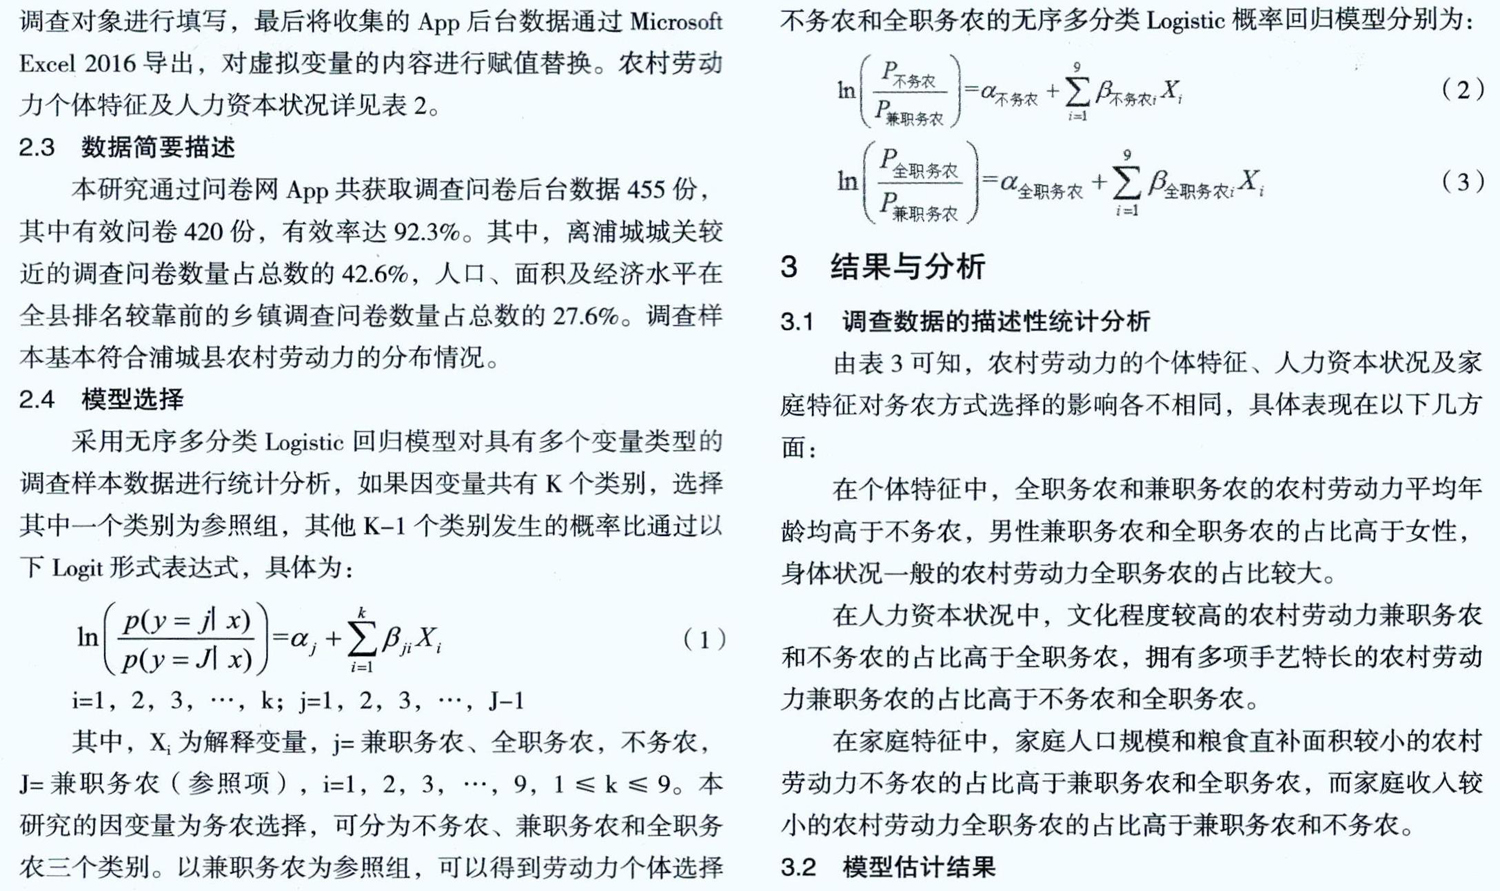 调查对象进行填写，最后将收集的 App 后台数据通过 Microsoft
Excel 2016 导出，对虚拟变量的内容进行赋值替换。农村劳动
力个体特征及人力资本状况详见表 2。
2.3 数据简要描述
本研究通过问卷网 App 共获取调查问卷后台数据 455 份，
其中有效问卷 420 份，有效率达 92.3%。其中，离浦城城关较
近的调查问卷数量占总数的 42.6%，人口、面积及经济水平在
全县排名较靠前的乡镇调查问卷数量占总数的 27.6%。调查样
本基本符合浦城县农村劳动力的分布情况。
2.4 模型选择
采用无序多分类 Logistic 回归模型对具有多个变量类型的
调查样本数据进行统计分析，如果因变量共有 K 个类别，选择
其中一个类别为参照组，其他 K-1 个类别发生的概率比通过以
下 Logit 形式表达式，具体为：
ln(p(y = j| x)/p(y = J| x))=α_j + ∑_{i=1}^{k} β_{ji} X_i （1）
i=1，2，3，…，k；j=1，2，3，…，J-1
其中，X_i 为解释变量，j= 兼职务农、全职务农，不务农，
J= 兼职务农（参照项），i=1，2，3，…，9，1 ≤ k ≤ 9。本
研究的因变量为务农选择，可分为不务农、兼职务农和全职务
农三个类别。以兼职务农为参照组，可以得到劳动力个体选择
不务农和全职务农的无序多分类 Logistic 概率回归模型分别为：
ln(P_不务农/P_兼职务农)=α_不务农 + ∑_{i=1}^{9} β_{不务农i} X_i （2）
ln(P_全职务农/P_兼职务农)=α_全职务农 + ∑_{i=1}^{9} β_{全职务农i} X_i （3）
3 结果与分析
3.1 调查数据的描述性统计分析
由表 3 可知，农村劳动力的个体特征、人力资本状况及家
庭特征对务农方式选择的影响各不相同，具体表现在以下几方
面：
在个体特征中，全职务农和兼职务农的农村劳动力平均年
龄均高于不务农，男性兼职务农和全职务农的占比高于女性，
身体状况一般的农村劳动力全职务农的占比较大。
在人力资本状况中，文化程度较高的农村劳动力兼职务农
和不务农的占比高于全职务农，拥有多项手艺特长的农村劳动
力兼职务农的占比高于不务农和全职务农。
在家庭特征中，家庭人口规模和粮食直补面积较小的农村
劳动力不务农的占比高于兼职务农和全职务农，而家庭收入较
小的农村劳动力全职务农的占比高于兼职务农和不务农。
3.2 模型估计结果